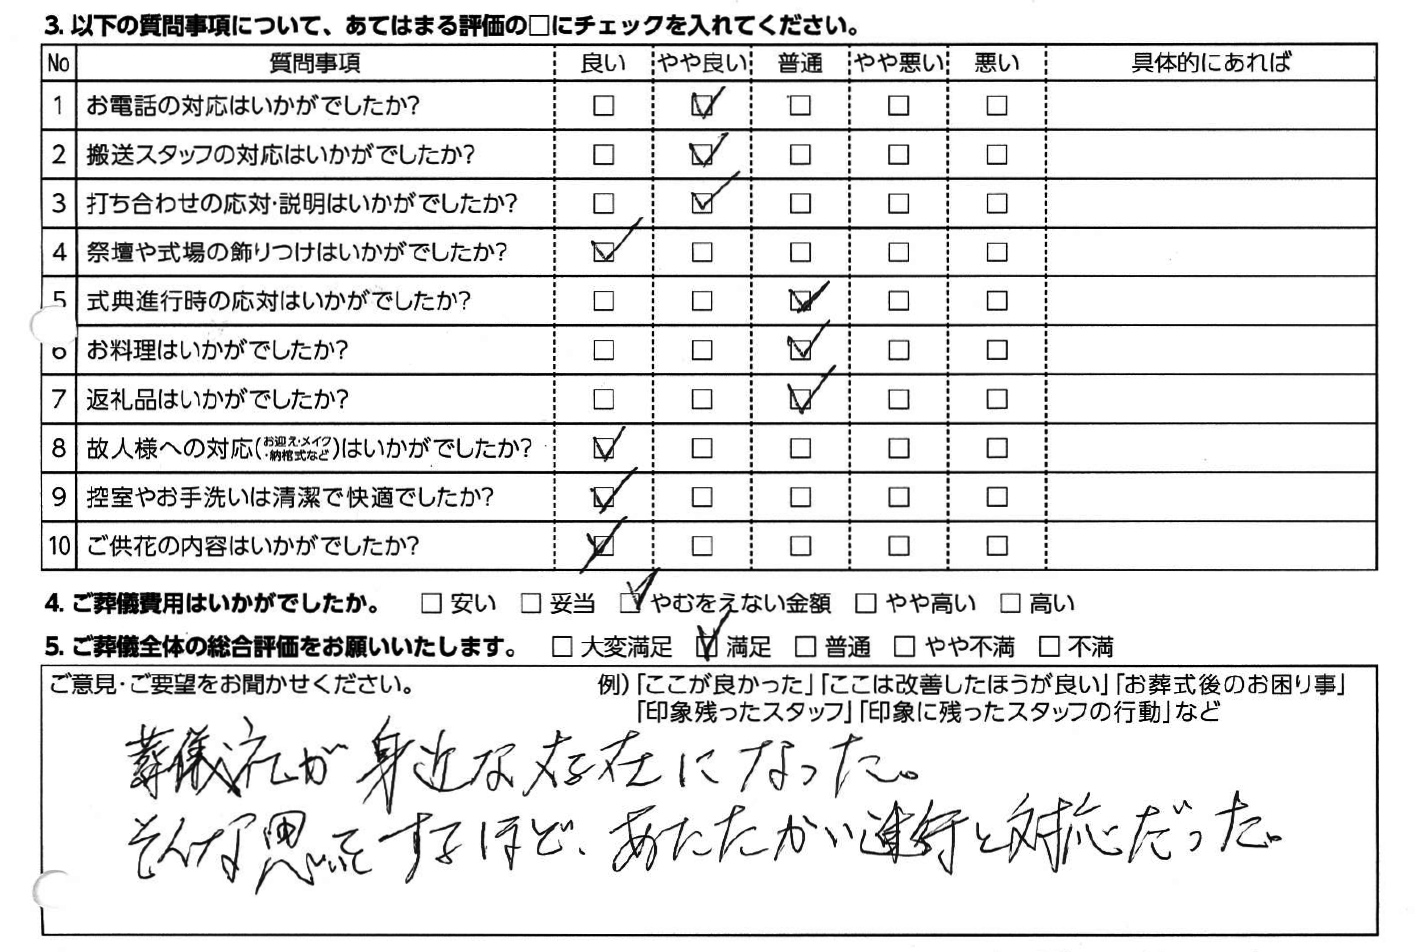 3. 以下の質問事項について、あてはまる評価の□にチェックを入れてください。
No 質問事項 良い やや良い 普通 やや悪い 悪い 具体的にあれば
1 お電話の対応はいかがでしたか? □ ☑ □ □ □
2 搬送スタッフの対応はいかがでしたか? □ ☑ □ □ □
3 打ち合わせの応対・説明はいかがでしたか? □ ☑ □ □ □
4 祭壇や式場の飾りつけはいかがでしたか? ☑ □ □ □ □
5 式典進行時の応対はいかがでしたか? □ □ ☑ □ □
6 お料理はいかがでしたか? □ □ ☑ □ □
7 返礼品はいかがでしたか? □ □ ☑ □ □
8 故人様への対応(お迎え・メイク・納棺式など)はいかがでしたか? ☑ □ □ □ □
9 控室やお手洗いは清潔で快適でしたか? ☑ □ □ □ □
10 ご供花の内容はいかがでしたか? ☑ □ □ □ □
4. ご葬儀費用はいかがでしたか。 □ 安い □ 妥当 ☑ やむをえない金額 □ やや高い □ 高い
5. ご葬儀全体の総合評価をお願いいたします。 □ 大変満足 ☑ 満足 □ 普通 □ やや不満 □ 不満
ご意見・ご要望をお聞かせください。 例)「ここが良かった」「ここは改善したほうが良い」「お葬式後のお困り事」
「印象残ったスタッフ」「印象に残ったスタッフの行動」など
葬儀社が身近な存在になった。
そんな思いをするほど、あたたかい進行と対応だった。